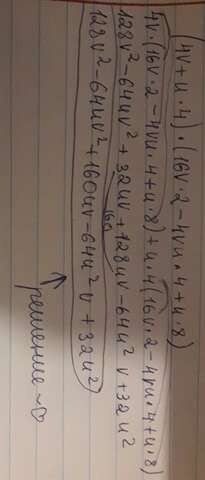 (4v+u·4)·(16v·2-4vu·4+u·8)
4v·(16v·2-4vu·4+u·8)+u·4(16v·2-4vu·4+u·8)
128v²-64uv²+32uv+128uv-64u²v+32u²
160
128v²-64uv²+160uv-64u²v+32u²
решение